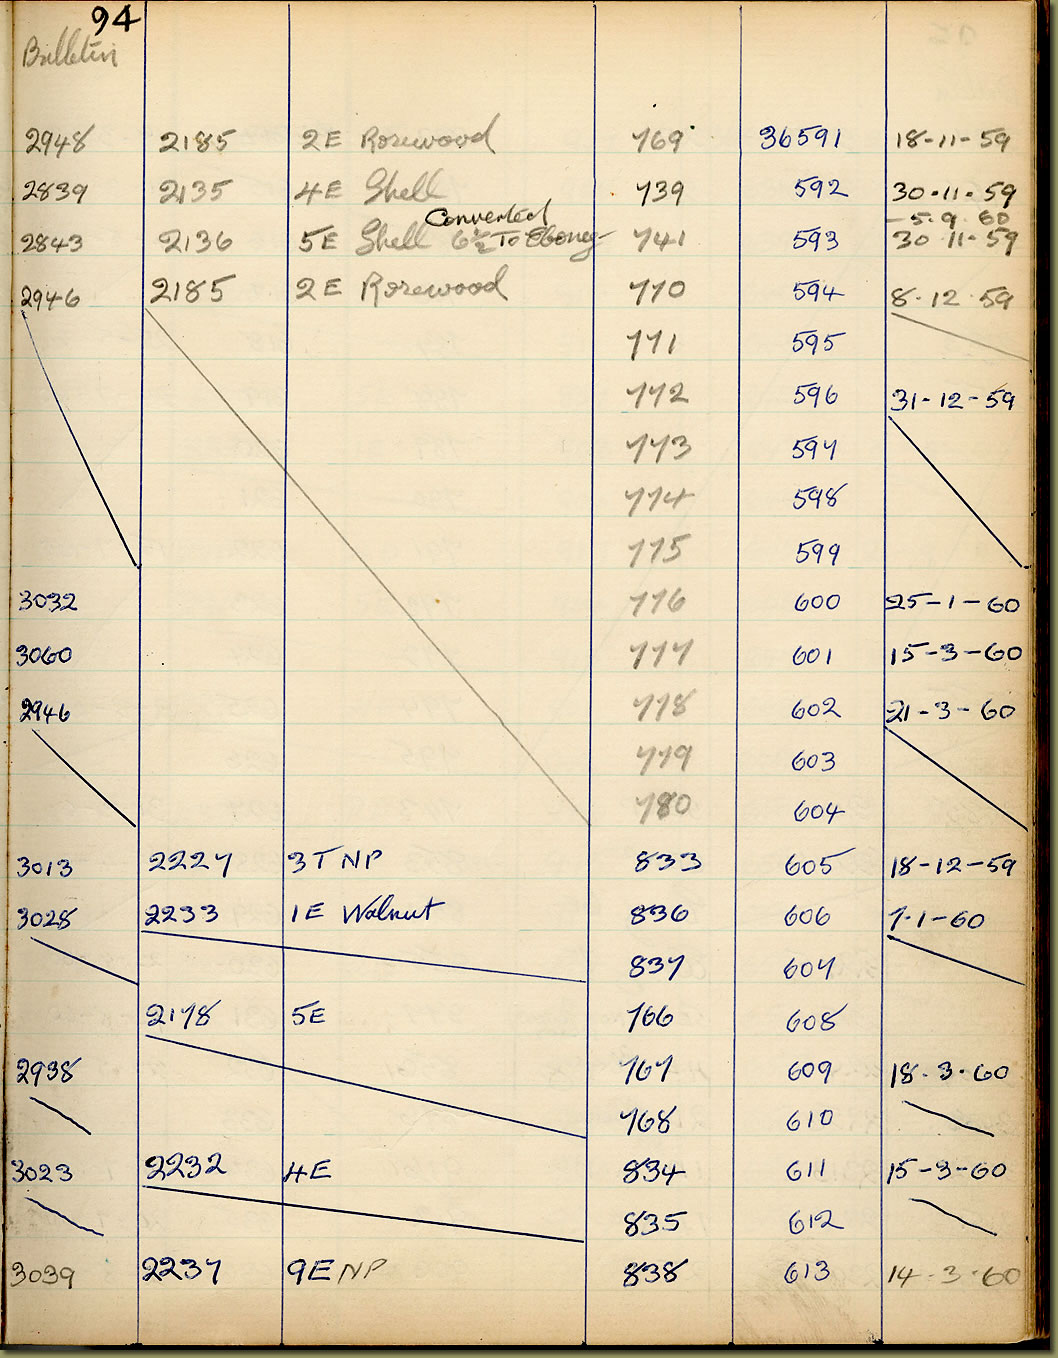 94
Bulletin
2948 2185 2E Rosewood 769 36591 18-11-59
2839 2135 4E Shell 739 592 30-11-59
Converted 5.9.60
2843 2136 5E Shell To Ebony 741 593 30-11-59
2946 2185 2E Rosewood 770 594 8.12.59
771 595
772 596 31-12-59
773 597
774 598
775 599
3032 776 600 25-1-60
3060 777 601 15-3-60
2946 778 602 21-3-60
779 603
780 604
3013 2227 3T NP 833 605 18-12-59
3028 2233 1E Walnut 836 606 7-1-60
837 607
2178 5E 766 608
2938 767 609 18.3.60
768 610
3023 2232 4E 834 611 15-3-60
835 612
3039 2237 9E NP 838 613 14.3.60